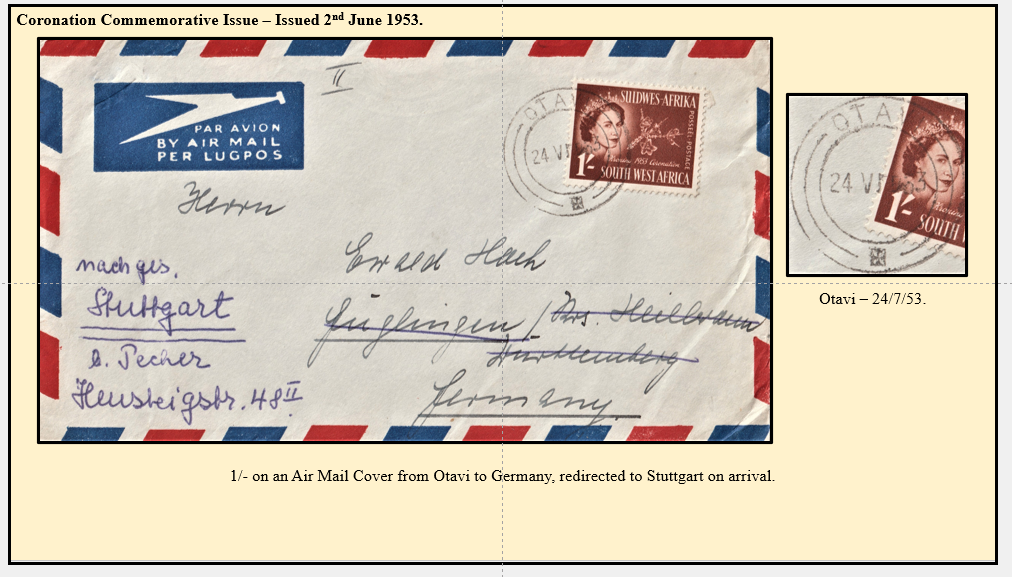 Coronation Commemorative Issue – Issued 2nd June 1953.
II
PAR AVION
BY AIR MAIL
PER LUGPOS
OTA
24 VI
SUIDWES-AFRIKA
POSSEEL·POSTAGE
Kroning 1953 Coronation
1/-
SOUTH WEST AFRICA
Herrn
Ewald Hach
Güglingen / Krs. Heilbronn
Württemberg
Germany.
nach ges.
Stuttgart
b. Pecher
Heusteigstr. 48 II
OTA
24 VI 53
1/-
SOUTH
Otavi – 24/7/53.
1/- on an Air Mail Cover from Otavi to Germany, redirected to Stuttgart on arrival.